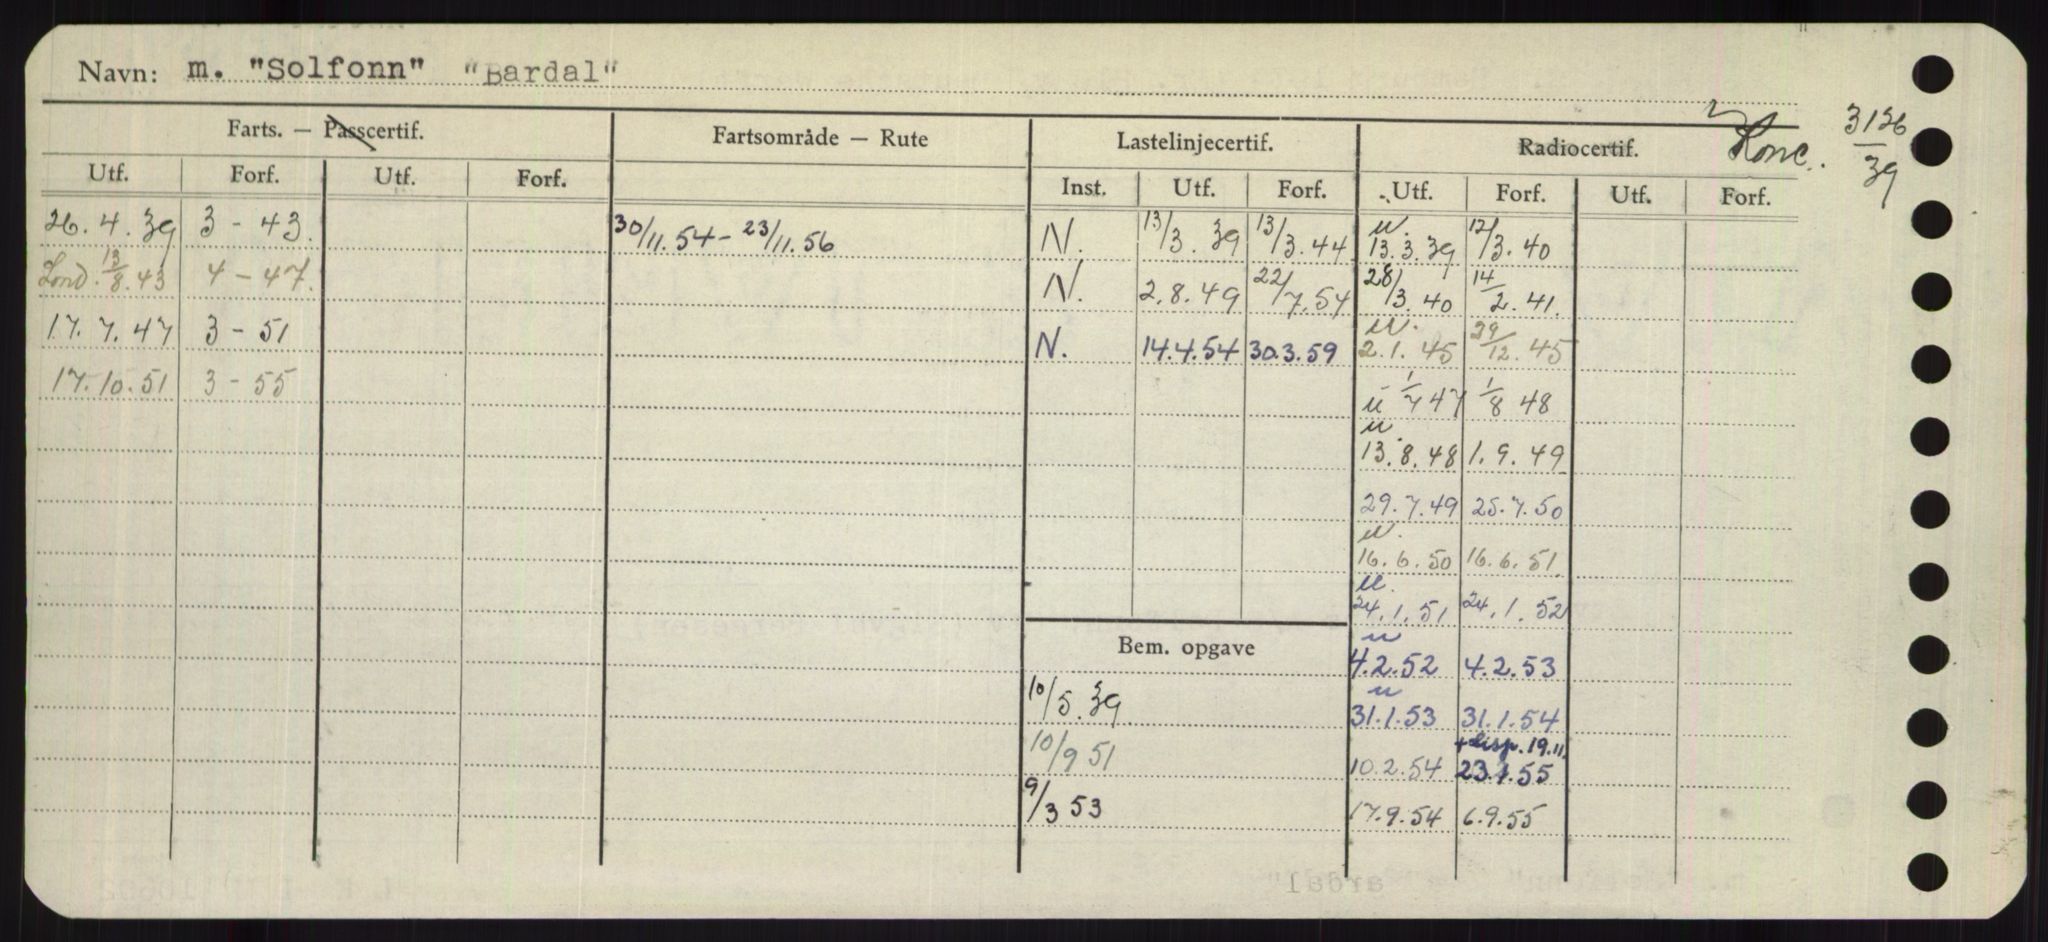 Navn: m. "Solfonn" "Bardal"
Farts. — Passcertif. Fartsområde — Rute Lastelinjecertif. Radiocertif. Konc. 3126/39
Utf. Forf. Utf. Forf. Inst. Utf. Forf. Utf. Forf. Utf. Forf.
26.4.39 3 - 43. 30/11.54 - 23/11.56 N. 13/3.39 13/3.44 u. 13.3.39 12/3.40
Lond. 13/8.43 4 - 47. N. 2.8.49 22/7.54 28/3.40 14/2.41.
17.7.47 3 - 51 N. 14.4.54 30.3.59 u. 2.1.45 29/12.45
17.10.51 3 - 55 u 1/7 47 1/8 48
u 13.8.48 1.9.49
29.7.49 25.7.50
u. 16.6.50 16.6.51.
u. 24.1.51 24.1.52
Bem. opgave u 4.2.52 4.2.53
10/5.39 u 31.1.53 31.1.54
10/9 51 10.2.54 + disp. 19.11. 23.1.55
9/3 53 17.9.54 6.9.55